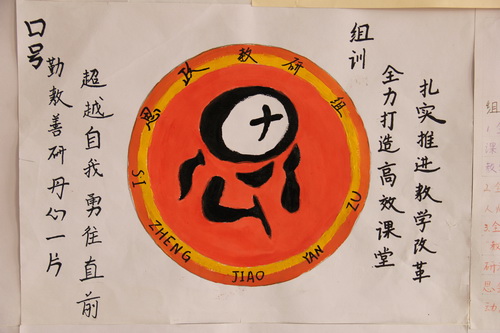 口号
勤教善研丹心一片
超越自我勇往直前
思政教研组
SI ZHENG JIAO YAN ZU
组训
全力打造高效课堂
扎实推进教学改革